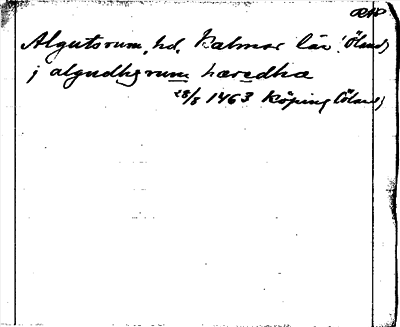 Algutsrum, hd. Kalmar län (Öland)
j algudhsrum hæredhæ
28/8 1463 Köping (Öland)